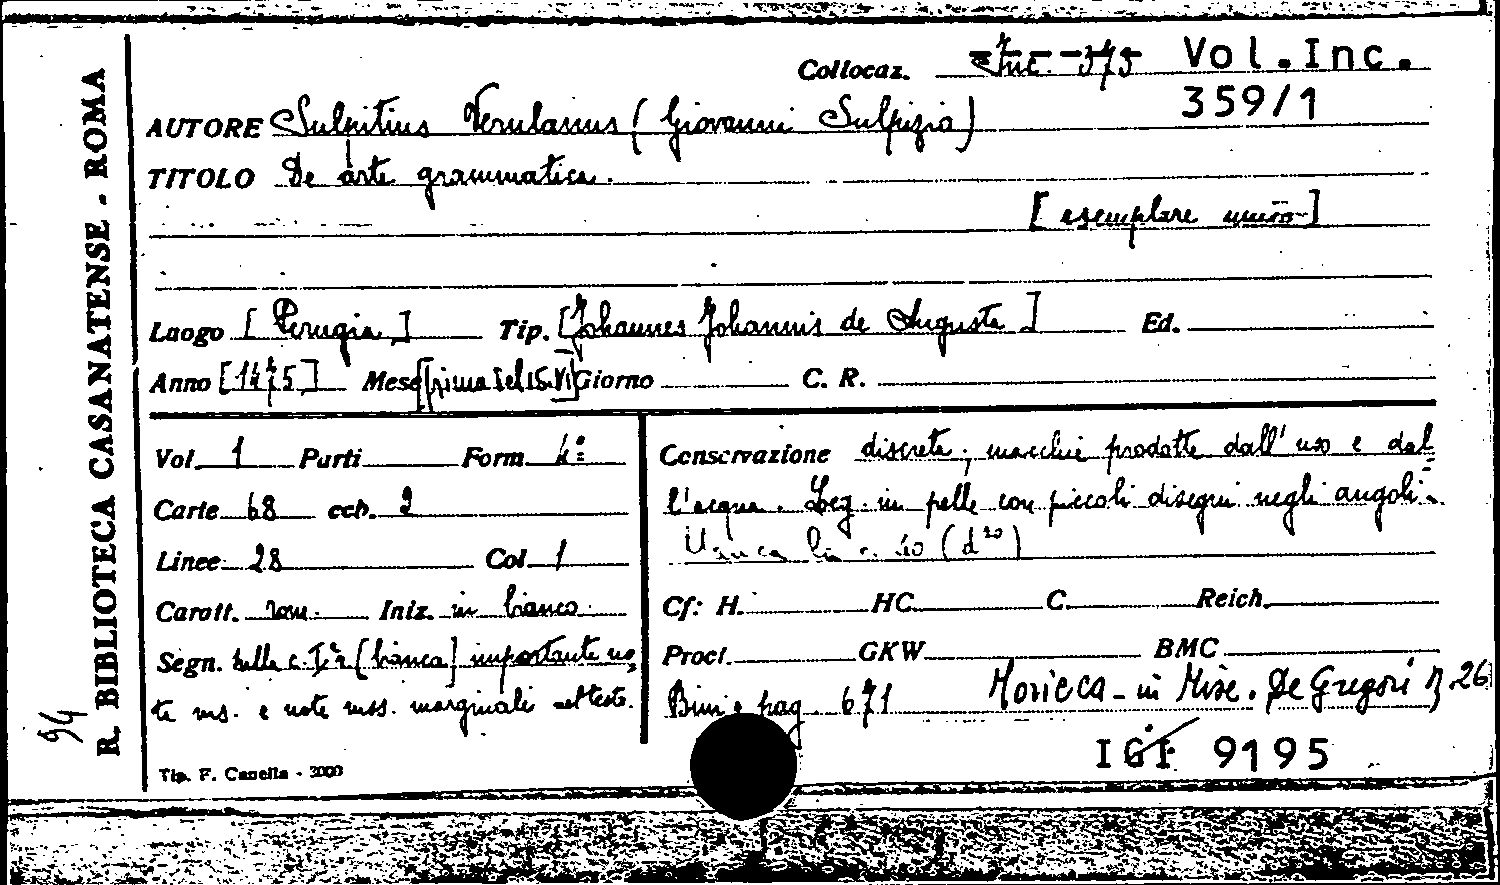 R. BIBLIOTECA CASANATENSE - ROMA
94
Collocaz. Inc. 373 Vol. Inc.
359/1
AUTORE Sulpitius Verulanus (Giovanni Sulpizio)
TITOLO De arte grammatica.
[esemplare unico]
Luogo [Perugia] Tip. [Johannes Johannis de Augusta] Ed.
Anno [1475] Mese [prima del 15.VI] Giorno C. R.
Vol. 1 Parti Form. 4º
Carte 68 cch. 2
Linee 28 Col. 1
Caratt. rom. Iniz. in bianco.
Segn. sulla c. 1ª r (bianca] importante no,
te ms. e note mss. marginali nel testo.
Conservazione discreta; macchie prodotte dall'uso e dal
l'acqua. Leg. in pelle con piccoli disegni negli angoli.
(d¹⁰)
Cf: H. HC. C. Reich.
Proct. GKW BMC
Bini e pag. 671 Moricca - in Misc. De Gregori p. 26
IGI 9195
Tip. F. Canella - 3000